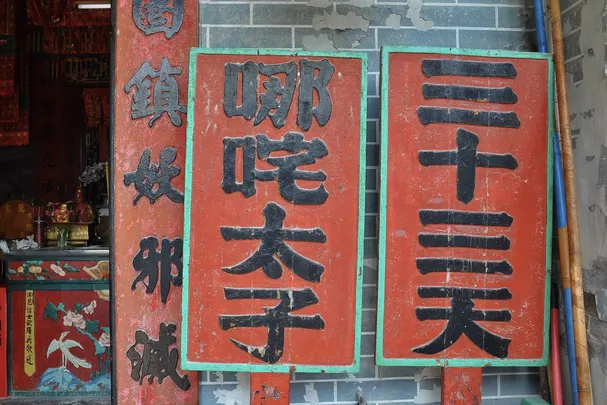 三十三天
哪咤太子
圈鎮妖邪滅